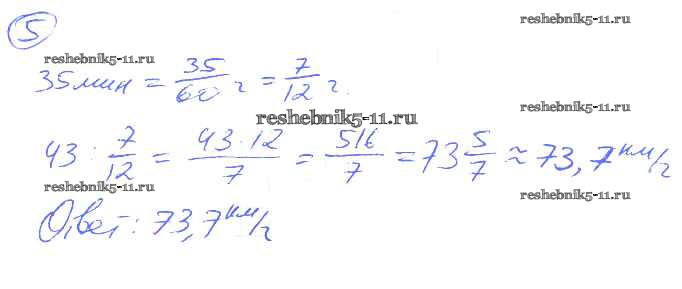 reshebnik5-11.ru
5
reshebnik5-11.ru
35 мин = 35/60 ч = 7/12 ч.
reshebnik5-11.ru
reshebnik5-11.ru
43 : 7/12 = 43·12/7 = 516/7 = 73 5/7 ≈ 73,7 км/ч
reshebnik5-11.ru
reshebnik5-11.ru
Ответ: 73,7 км/ч
reshebnik5-11.ru
reshebnik5-11.ru